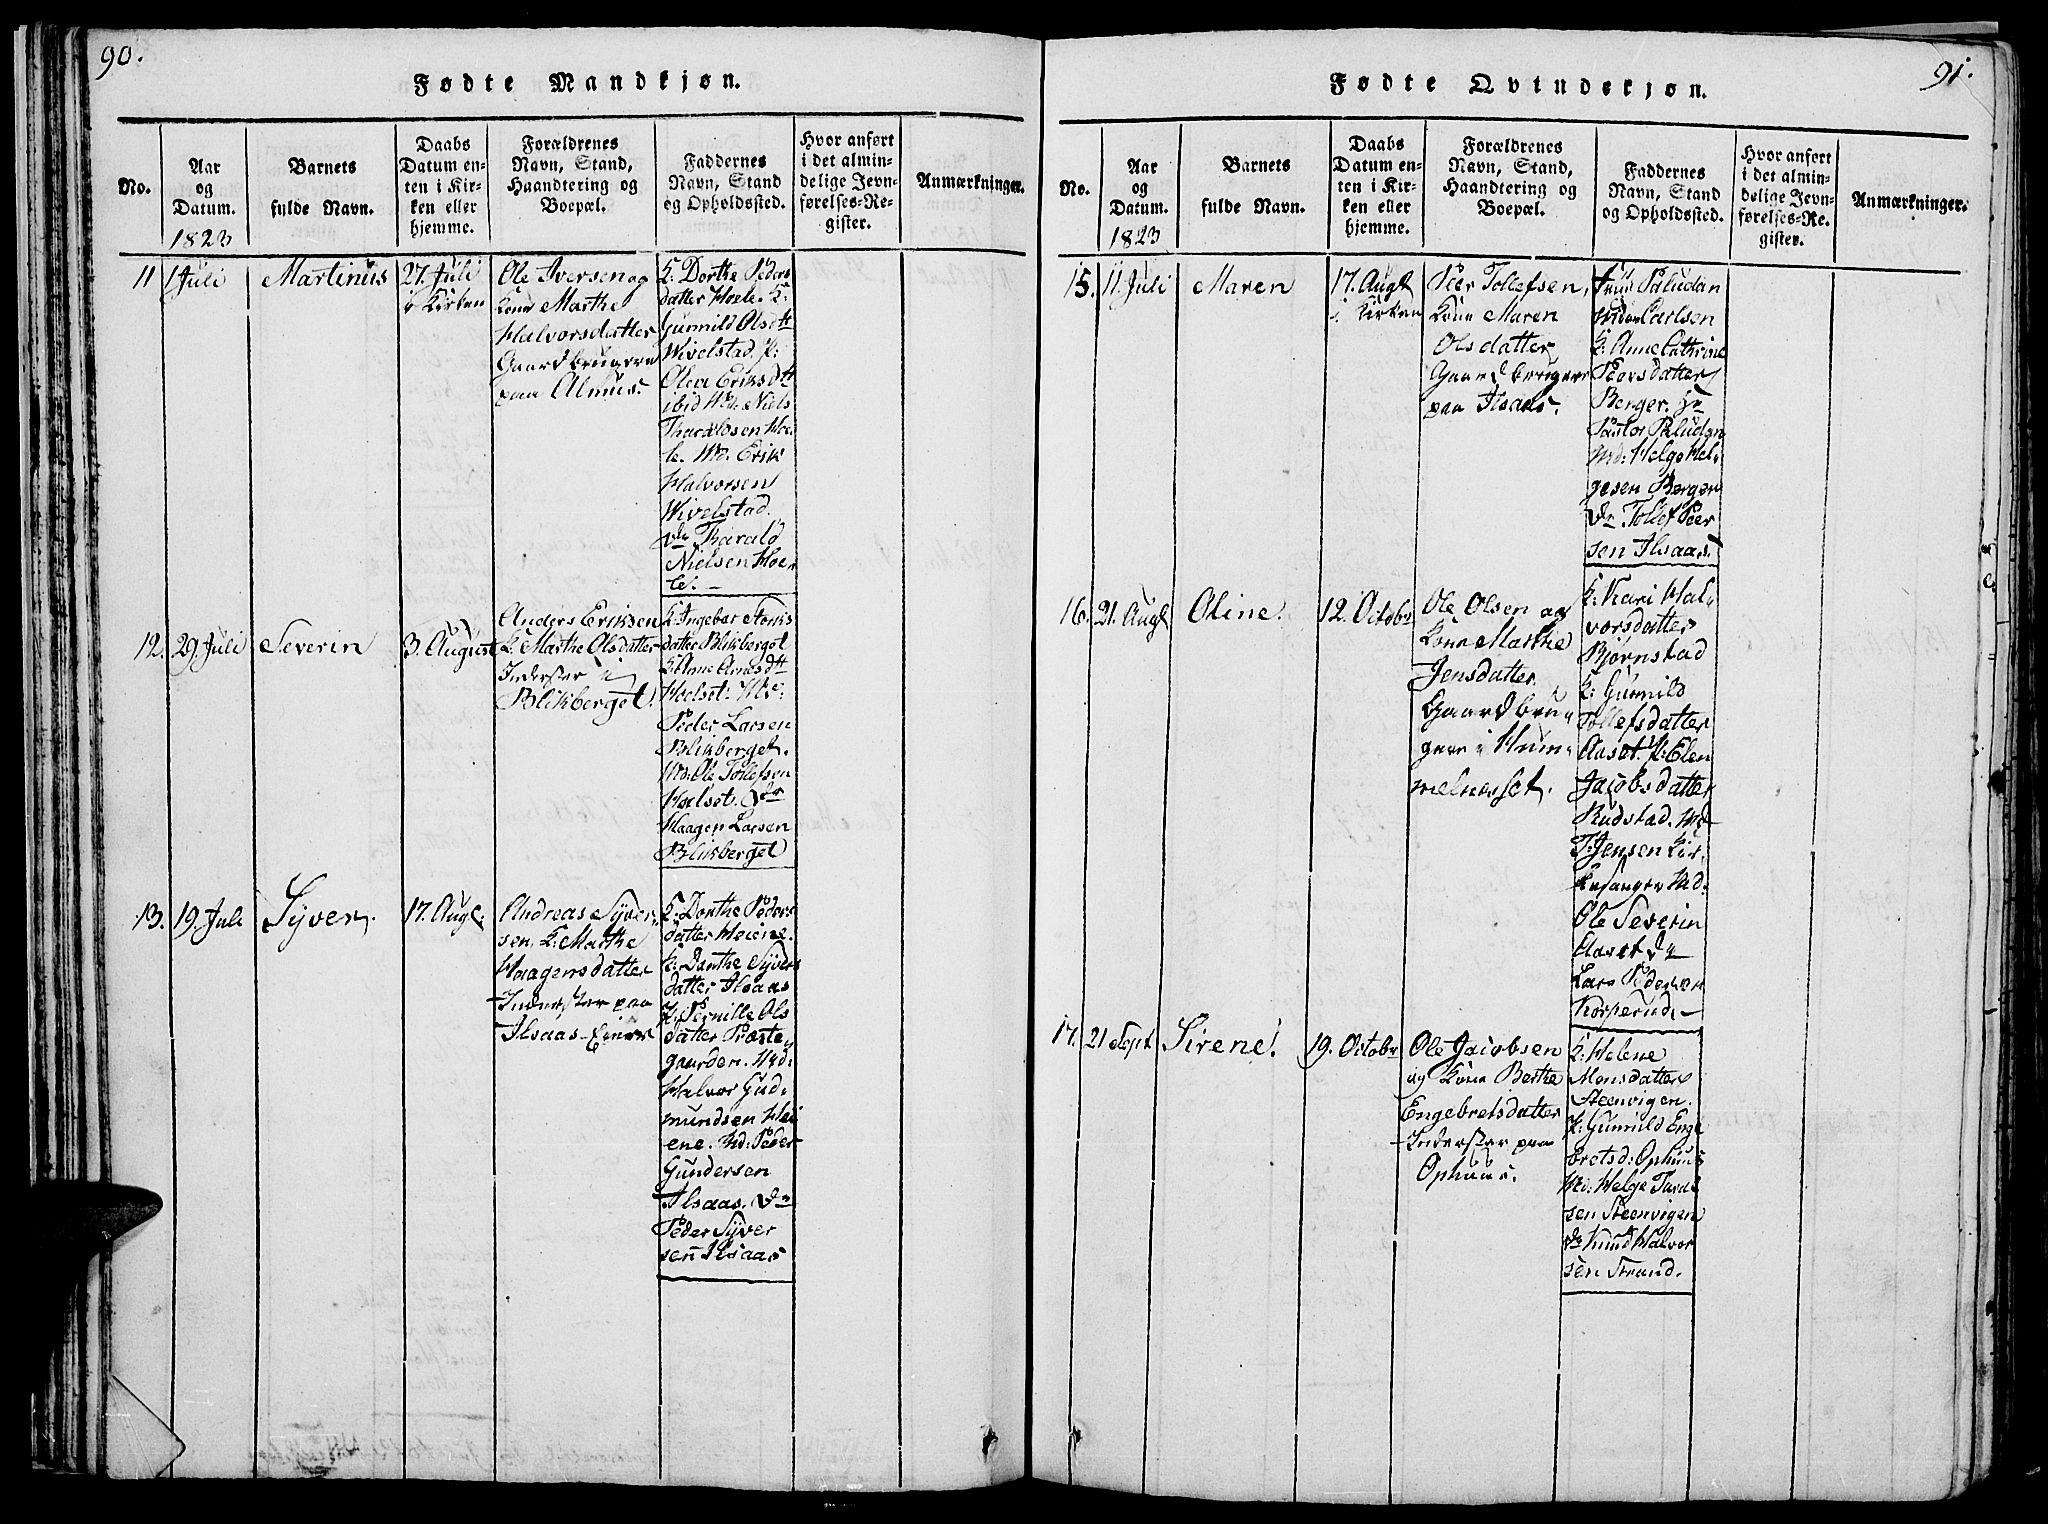 90.
Fødte Mandkjøn.
No.
Aar
og
Datum.
1823
Barnets
fulde Navn.
Daabs
Datum en-
ten i Kir-
ken eller
hjemme.
Forældrenes
Navn, Stand,
Haandtering og
Boepæl.
Faddernes
Navn, Stand
og Opholdssted.
Hvor anført
i det almin-
delige Jevn-
førelses-Re-
gister.
Anmærkninger.
11
1 Juli
Martinus
27. Juli
i Kirken
Ole Iversen og
Kone Marthe
Halvorsdatter
Gaardbrugere
paa Almus.
K: Dorthe Peders
datter Hoele. K:
Gunnild Olsdtt
Wivelstad. P:
Olea Eriksdtt
ibid Md: Niels
Tharaldsen Hoe
le. Md. Erik
Halvorsen
Wivelstad.
Dr Tharald
Nielsen Hoe
le. –
12.
29. Juli
Severin
3. August
Anders Eriksen
K: Marthe Olsdatter
Inderster i
Blikberget.
K: Ingebor
datter Blikberget
K: Anne Arnesdtt
Hoelset: Md:
Peder Larsen
Blikberget.
Md: Ole Tollefsen
Hoelset. Dr
Haagen Larsen
Blikberget
13.
19. Juli
Syver.
17. Augt:
Andreas Syver
sen, K: Marthe
Haagensdatter
Inderster paa
Ilsaas-Eier
K: Dorthe Peders
datter Høiene.
K: Dorthe Syvers
datter Ilsaas
P: Pernille Ols
datter Præste
gaarden. Md:
Halvor Gud-
mundsen Høi
ene. Md: Peder
Gundersen
Ilsaas. Dr
Peder Syver
sen Ilsaas
91.
Fødte Qvindekjøn.
No.
Aar
og
Datum.
1823
Barnets
fulde Navn.
Daabs
Datum en-
ten i Kir-
ken eller
hjemme.
Forældrenes
Navn, Stand,
Haandtering og
Boepæl.
Faddernes
Navn, Stand
og Opholdssted.
Hvor anført
i det almin-
delige Jevn-
førelses-Re-
gister.
Anmærkninger.
15.
11. Juli
Maren
17. Augt
i Kirken
Peer Tollefsen,
Kone Maren
Olsdatter
Gaardbrugere
paa Ilsaas.
Frue Paludan
Carlsen
K: Anne Cathrine
Peersdatter
Berger. Hr
Pastor Paludan
Md: Helge Hel-
gesen Berger
Dr. Tollef Peer
sen Ilsaas.
16.
21. Augt
Oline.
12. Octobr
Ole Olsen og
Kone Marthe
Jensdatter.
Gaardbru-
gere i Hum-
melnæsset.
K: Kari Hal-
vorsdatter
Bjørnstad
K: Gunnild
Tollefsdatter
Aaset. P: Elen
Jacobsdatter
Rudstad. Md
T: Jensen Kir-
kesanger Md:
Ole Severin
Aaset Dr
Lars Pedersen
Korperud. –
17.
21 Sept
Sirene.
19. Octobr
Ole Jacobsen
og Kone Berthe
Engebretsdatter
Inderster paa
Ophuus.
K: Helene
Monsdatter
Steenvigen.
K: Gunnild Enge
bretsd: Ophuus
Md: Helge Taral
sen Steenvigen
Dr Knud Halvor
sen Strand.